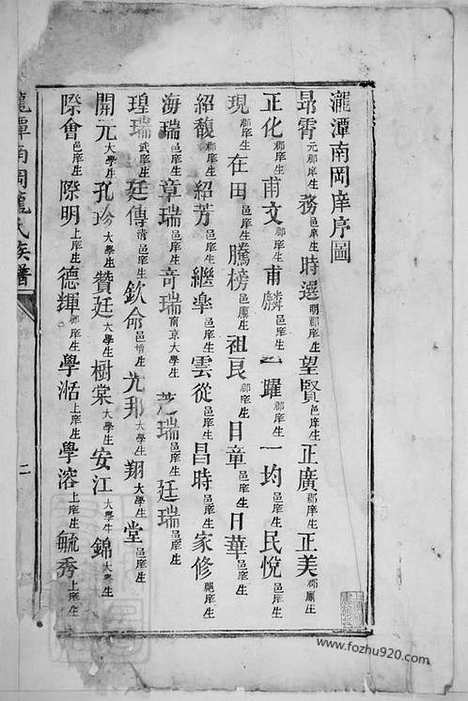 瀧潭南岡庠序圖
昂霄元郡庠生 務邑庠生 時選明郡庠生 望賢邑庠生 正廣郡庠生 正美郡廩生
正化郡庠生 甫文郡庠生 甫麟邑庠生 一躍郡庠生 一均邑庠生 民悅邑庠生
現郡庠生 在田邑庠生 騰榜邑廩生 祖良郡庠生 日章邑庠生 日華邑庠生
紹馥郡庠生 紹芳邑庠生 繼學邑庠生 雲從邑庠生 昌時邑庠生 家修邑庠生
海瑞邑庠生 章瑞邑庠生 奇瑞南京大學生 瑞邑庠生 廷瑞邑庠生
瑝瑞武庠生 廷傳清邑庠生 欽命邑增生 光邦大學生 翔大學生 堂邑庠生
開元大學生 孔珍大學生 贊廷大學生 樹棠大學生 安江大學生 錦大學生
際會邑庠生 際明上庠生 德輝郡庠生 學湉上庠生 學溶上庠生 毓秀上庠生
潭南岡 氏族譜
二
www.fozhu920.com